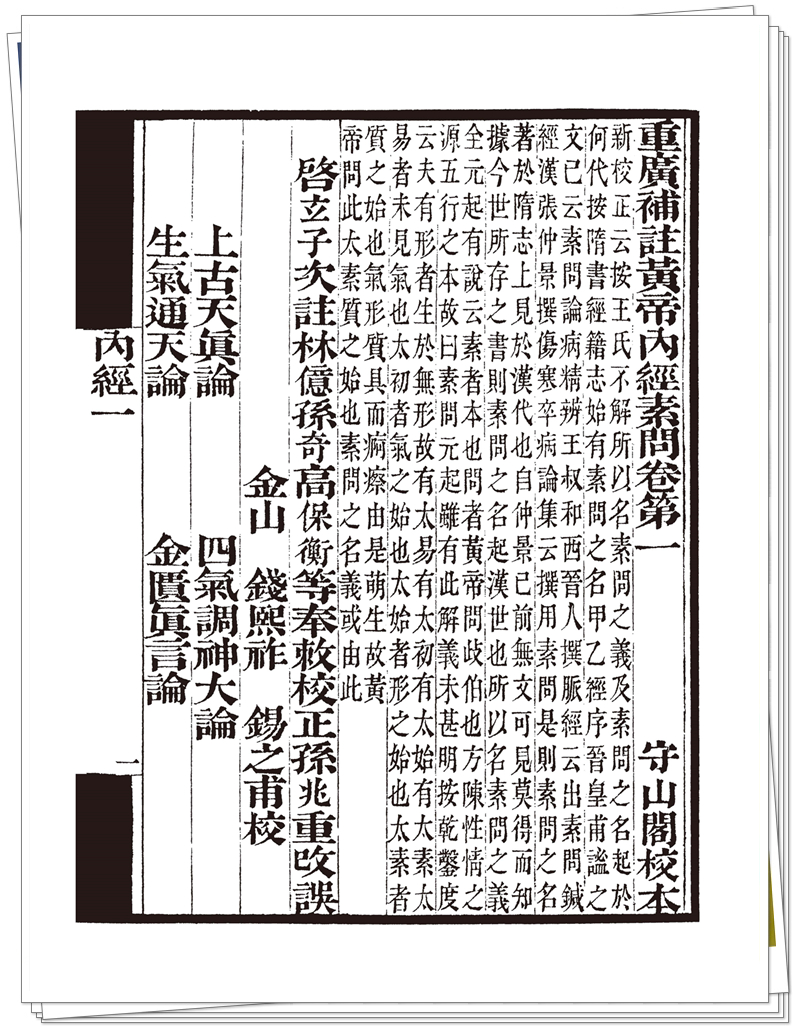 重廣補註黃帝內經素問卷第一　守山閣校本
新校正云按王氏不解所以名素問之義及素問之名起於
何代按隋書經籍志始有素問之名甲乙經序晉皇甫謐之
文已云素問論病精辨王叔和西晉人撰脈經云出素問鍼
經漢張仲景撰傷寒卒病論集云撰用素問是則素問之名
著於隋志上見於漢代也自仲景已前無文可見莫得而知
據今世所存之書則素問之名起漢世也所以名素問之義
全元起有說云素者本也問者黃帝問歧伯也方陳性情之
源五行之本故曰素問元起雖有此解義未甚明按乾鑿度
云夫有形者生於無形故有太易有太初有太始有太素太
易者未見氣也太初者氣之始也太始者形之始也太素者
質之始也氣形質具而痾瘵由是萌生故黃
帝問此太素質之始也素問之名義或由此
啓玄子次註林億孫奇高保衡等奉敕校正孫兆重改誤
金山　錢熙祚　錫之甫校
上古天眞論　四氣調神大論
生氣通天論　金匱眞言論
內經一　一